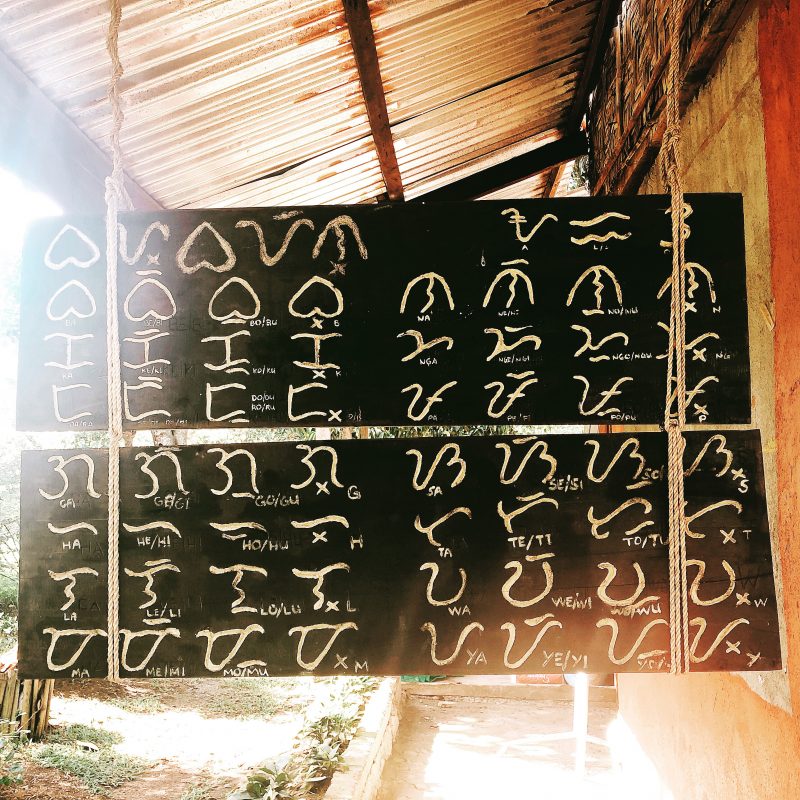 ᜊᜌᜊᜌᜒᜈ᜔ ᜀ ᜁ ᜂ
A
ᜊ ᜊᜒ ᜊᜓ ᜊ᜔ ᜈ ᜈᜒ ᜈᜓ ᜈ᜔
BA BE/BI BO/BU B NA NE/NI NO/NU N
ᜃ ᜃᜒ ᜃᜓ ᜃ᜔ ᜅ ᜅᜒ ᜅᜓ ᜅ᜔
KA KE/KI KO/KU K NGA NGE/NGI NGO/NGU NG
ᜇ ᜇᜒ ᜇᜓ ᜇ᜔ ᜉ ᜉᜒ ᜉᜓ ᜉ᜔
DA/RA DO/DU RO/RU PA PE/PI PO/PU P
ᜄ ᜄᜒ ᜄᜓ ᜄ᜔ ᜐ ᜐᜒ ᜐᜓ ᜐ᜔
GA GE/GI GO/GU G SA SE/SI SO/ S
ᜑ ᜑᜒ ᜑᜓ ᜑ᜔ ᜆ ᜆᜒ ᜆᜓ ᜆ᜔
HA HE/HI HO/HU H TA TE/TI TO/TU T
ᜎ ᜎᜒ ᜎᜓ ᜎ᜔ ᜏ ᜏᜒ ᜏᜓ ᜏ᜔
LA LE/LI LO/LU L WA WE/WI WO/WU W
ᜋ ᜋᜒ ᜋᜓ ᜋ᜔ ᜌ ᜌᜒ ᜌᜓ ᜌ᜔
MA ME/MI MO/MU M YA YE/YI Y